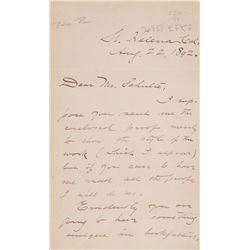 St. Helena Cal.
Aug. 22, 1892.
Dear Mr. Schulte,
I sup-
pose you sent me the
enclosed proofs merely
to show the style of the
work (which I approve)
but if you care to have
me read all the proofs
I will do so.
Evidently you are
going to have something
unique in bookmaking